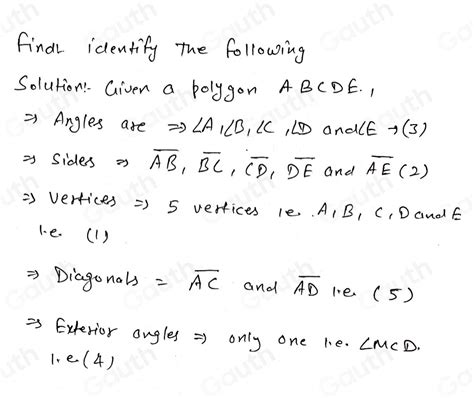 Find identify The following
Solution:- Given a polygon A B C D E.,
⇒ Angles are ⇒ ∠A, ∠B, ∠C, ∠D and ∠E → (3)
⇒ Sides ⇒ AB, BC, CD, DE and AE (2)
⇒ Vertices ⇒ 5 vertices i.e. A, B, C, D and E
i.e. (1)
⇒ Diagonals = AC and AD i.e. (5)
⇒ Exterior angles ⇒ only one i.e. ∠MCD.
i.e. (4)